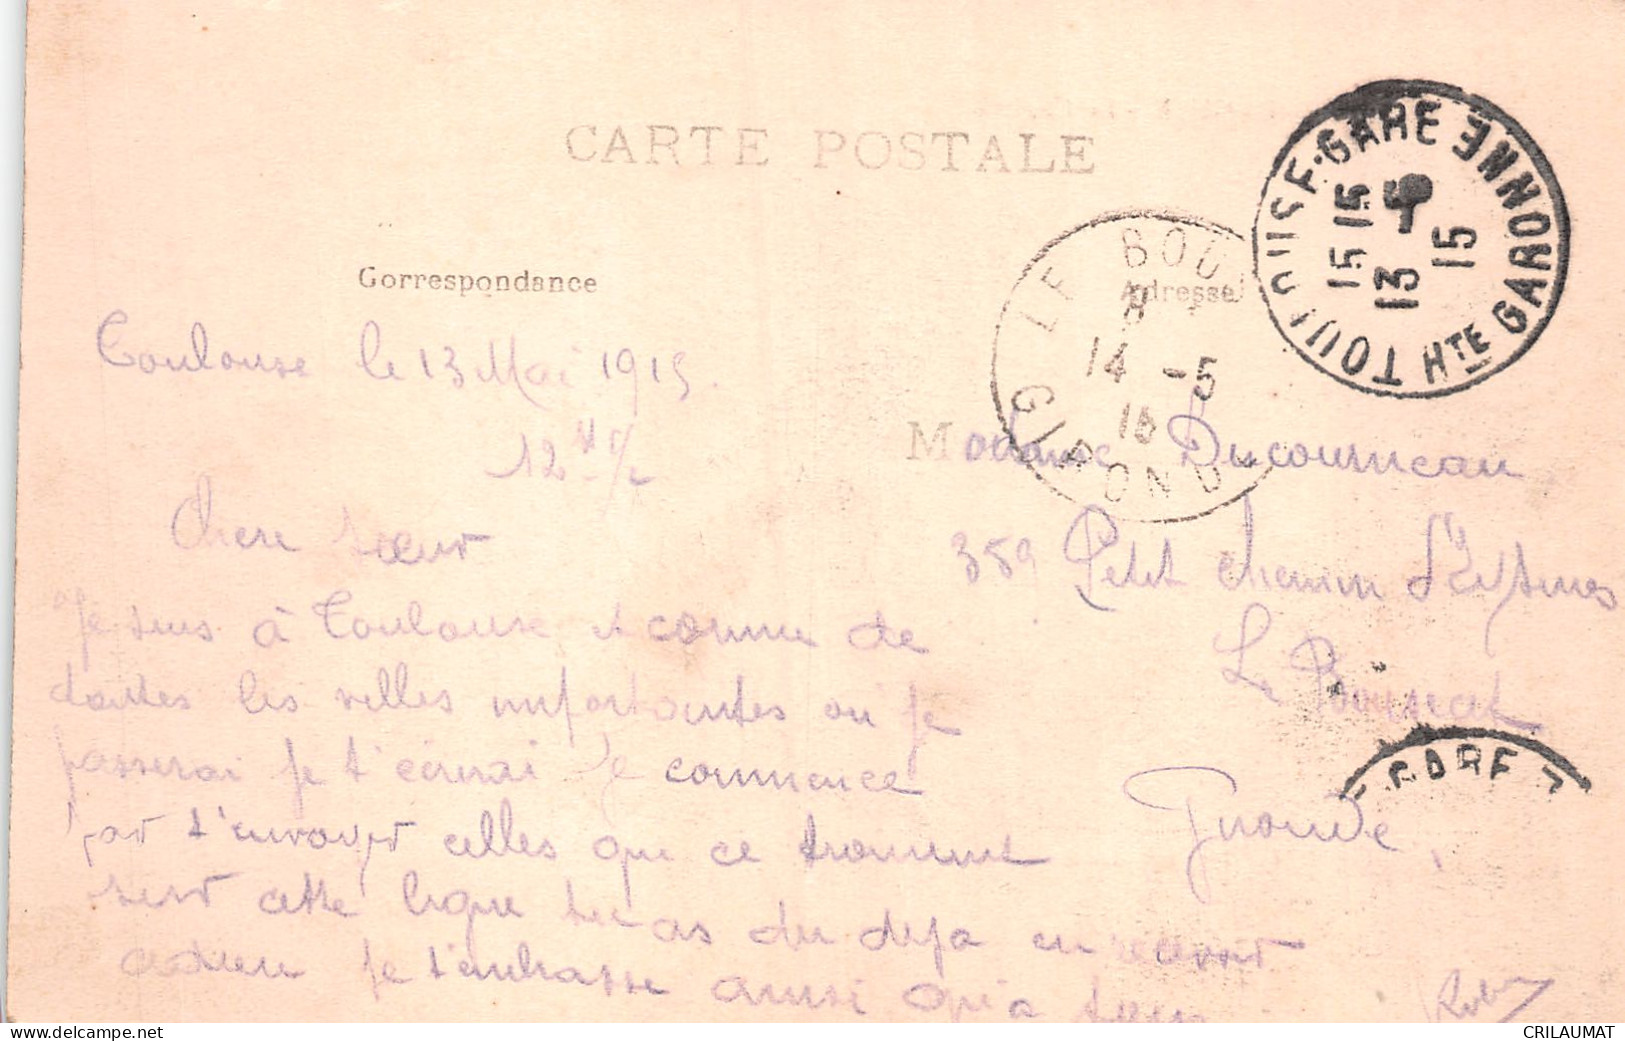 CARTE POSTALE
Correspondance
Adresse
TOULOUSE-GARE
Hte GARONNE
15 15
13 - 5
15
LE BOU
8
14 -5
15
GIRONDE
Toulouse le 13 Mai 1915.
12 H 1/2
Chere sœur
Je suis à Toulouse et comme de
toutes les villes importantes ou je
passerai je t'écrirai Je commence
par t'envoyer celles qui ce trouvent
sur cette ligne tu as du deja en recevoir
adieu je t'embrasse ainsi qu'a tous
Madame Ducourneau
389 Petit chemin d'Eysines
Le Bouscat
Gironde,
GARE
CRILAUMAT